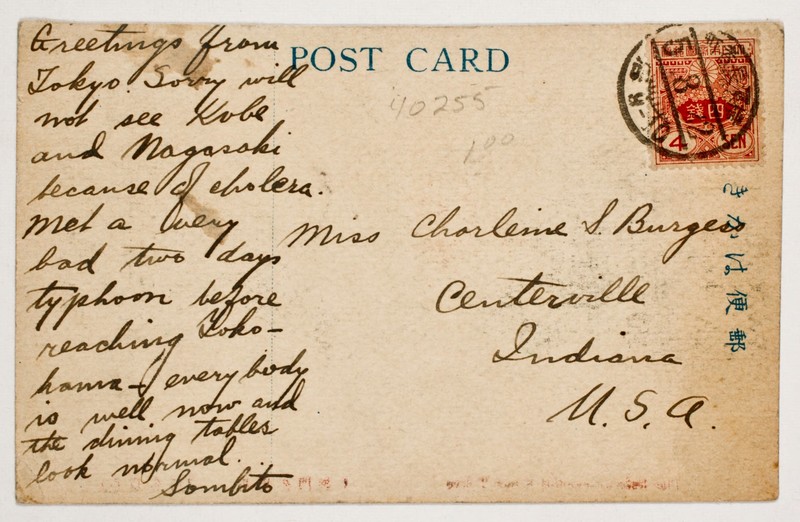 POST CARD
Greetings from
Tokyo. Sorry will
not see Kobe
and Nagasaki
because of cholera.
Met a very
bad two days
typhoon before
reaching Yoko-
hama - everybody
is well now and
the dining tables
look normal.
Sombito
40255
1.00
四銭
4 SEN
Miss Charleine S. Burgess
Centerville
Indiana
U.S.A.
きかは便郵